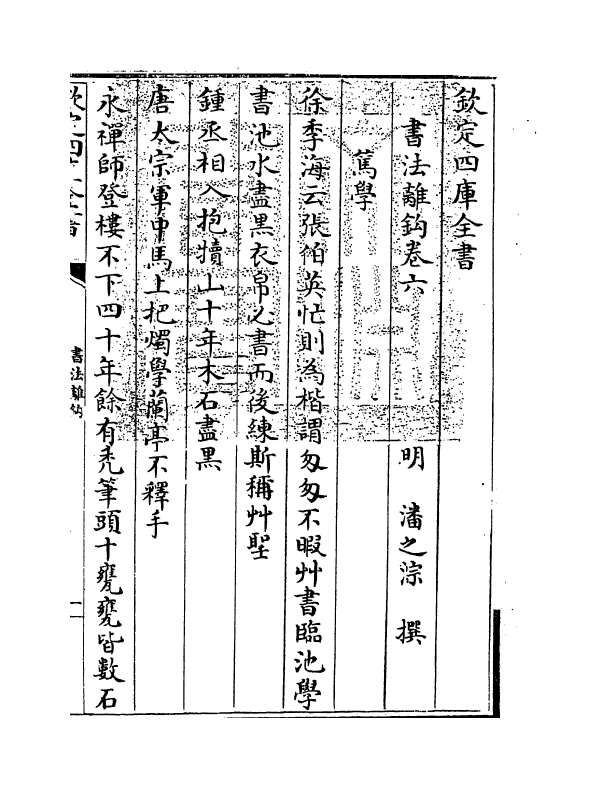 欽定四庫全書
書法離鈎卷六 明 潘之淙 撰
篤學
徐季海云張伯英忙則為楷謂匆匆不暇艸書臨池學
書池水盡黑衣帛必書而後練斯稱艸聖
鍾丞相入抱犢山十年木石盡黒
唐太宗軍中馬上把燭學蘭亭不釋手
永禪師登樓不下四十年餘有禿筆頭十甕甕皆數石
欽定四庫全書
書法離鈎
一